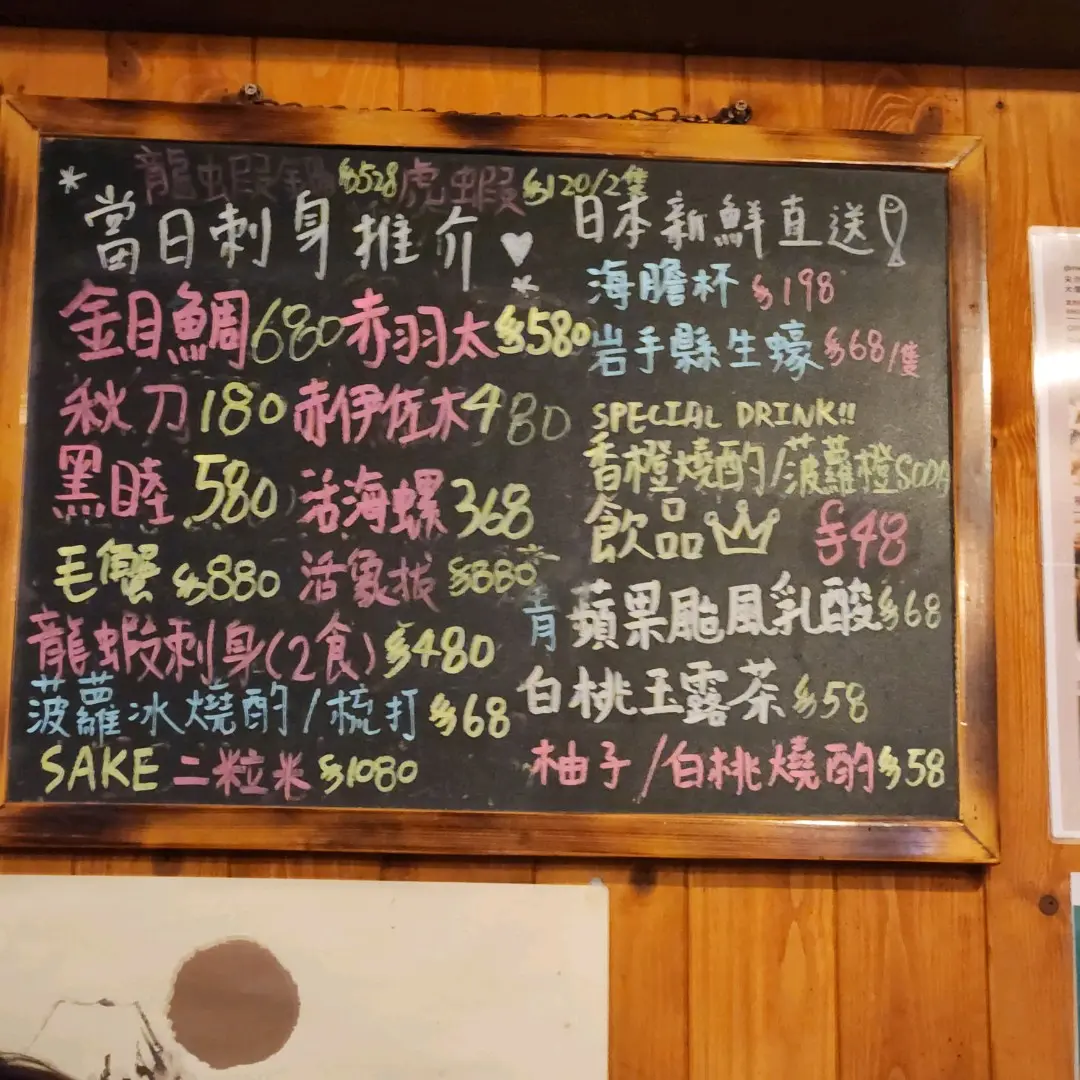 龍蝦鍋 $528 虎蝦 $120/2隻
當日刺身推介♥
金目鯛 680 赤羽太 $580
秋刀 180 赤伊佐木 480
黑睦 580 活海螺 368
毛蟹 $880 活象拔 $880
龍蝦刺身(2食) $480
菠蘿冰燒酌/梳打 $68
SAKE 二粒米 $1080
日本新鮮直送
海膽杯 $198
岩手縣生蠔 $68/隻
SPECIAL DRINK!!
香橙燒酌/菠蘿橙SODA
飲品 $48
青蘋果颱風乳酸 $68
白桃玉露茶 $58
柚子/白桃燒酌 $58